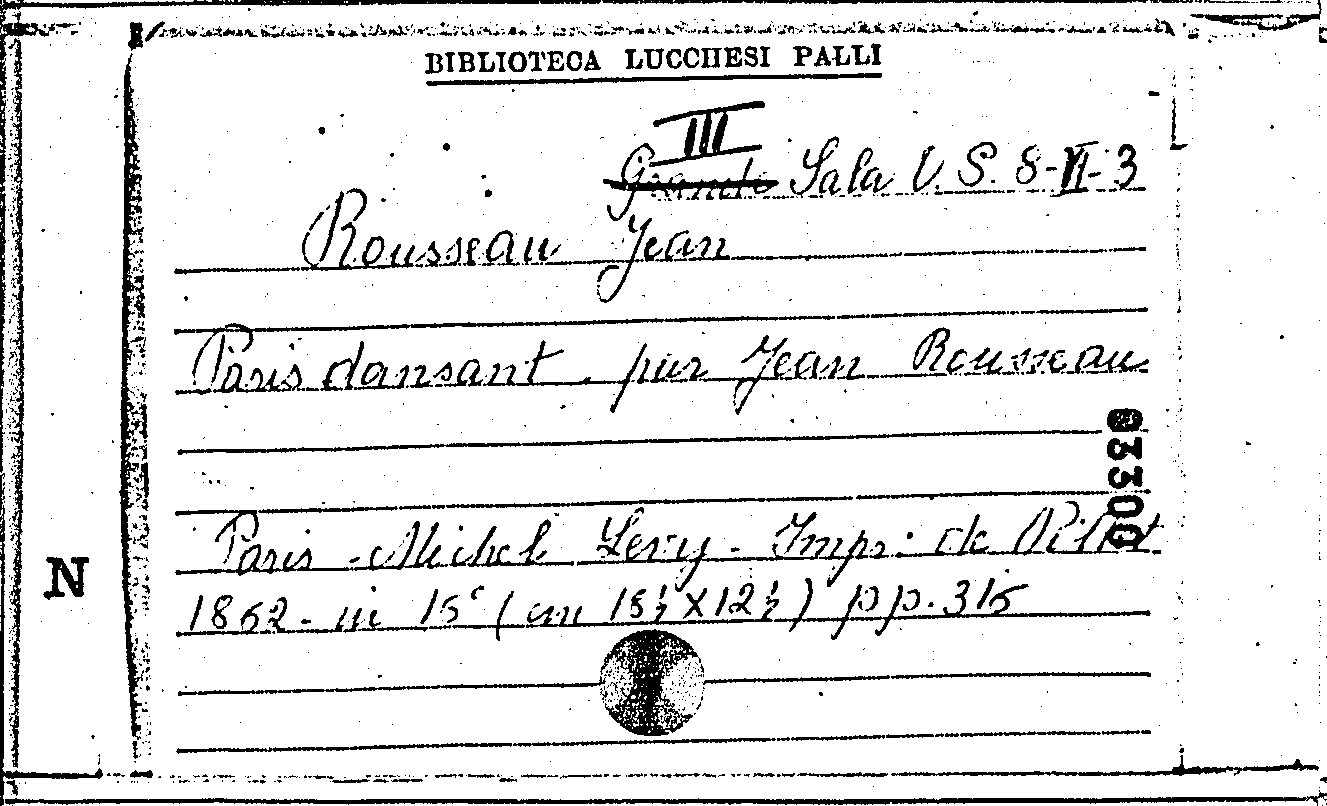 BIBLIOTECA LUCCHESI PALLI
III
Grande Sala V. S. 8-VI-3
Rousseau Jean
Paris dansant. par Jean Rousseau
03300
Paris - Michel Levy - Impr: de Pillet
N
1862 - in 15° (cm 18½ X 12½) pp. 315